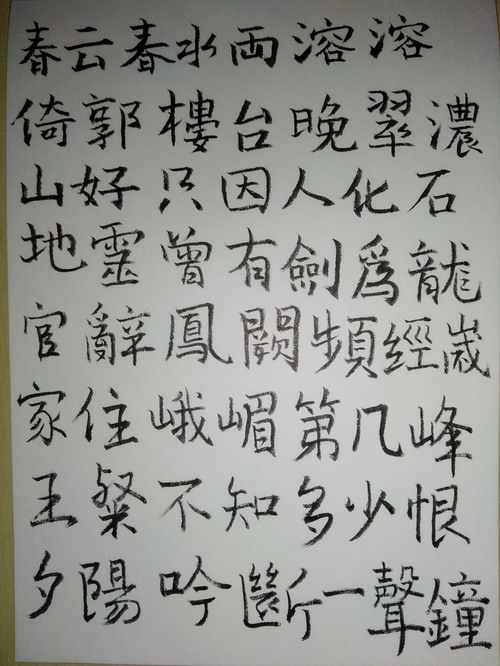 春云春水両溶溶
倚郭樓台晚翠濃
山好只因人化石
地靈曾有劍為龍
官辭鳳闕頻經歲
家住峨嵋第几峰
王粲不知多少恨
夕陽吟斷一聲鐘